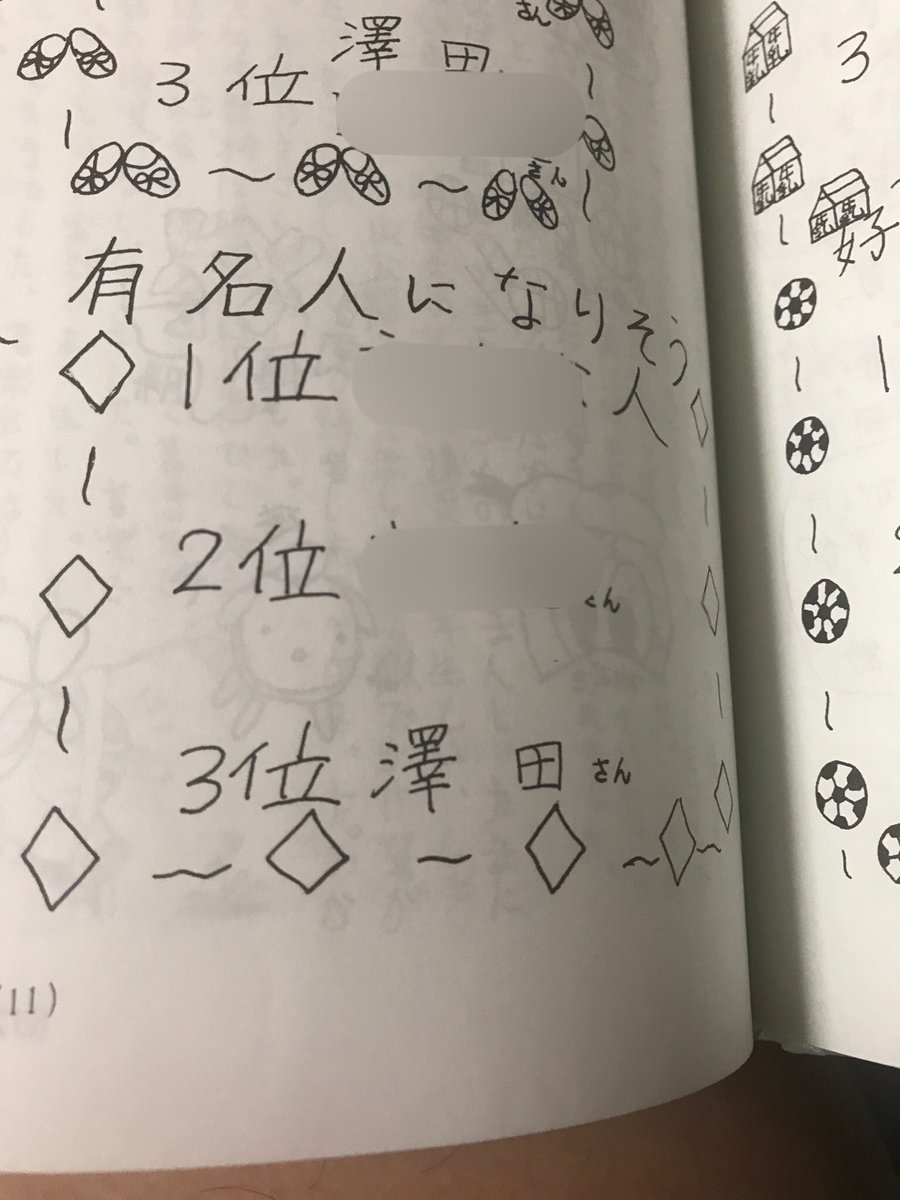 さん
3位 澤田
さん
有名人になりそう
人
1位
2位
くん
3位 澤田さん
(11)
牛乳
牛乳
牛乳
3
好
1